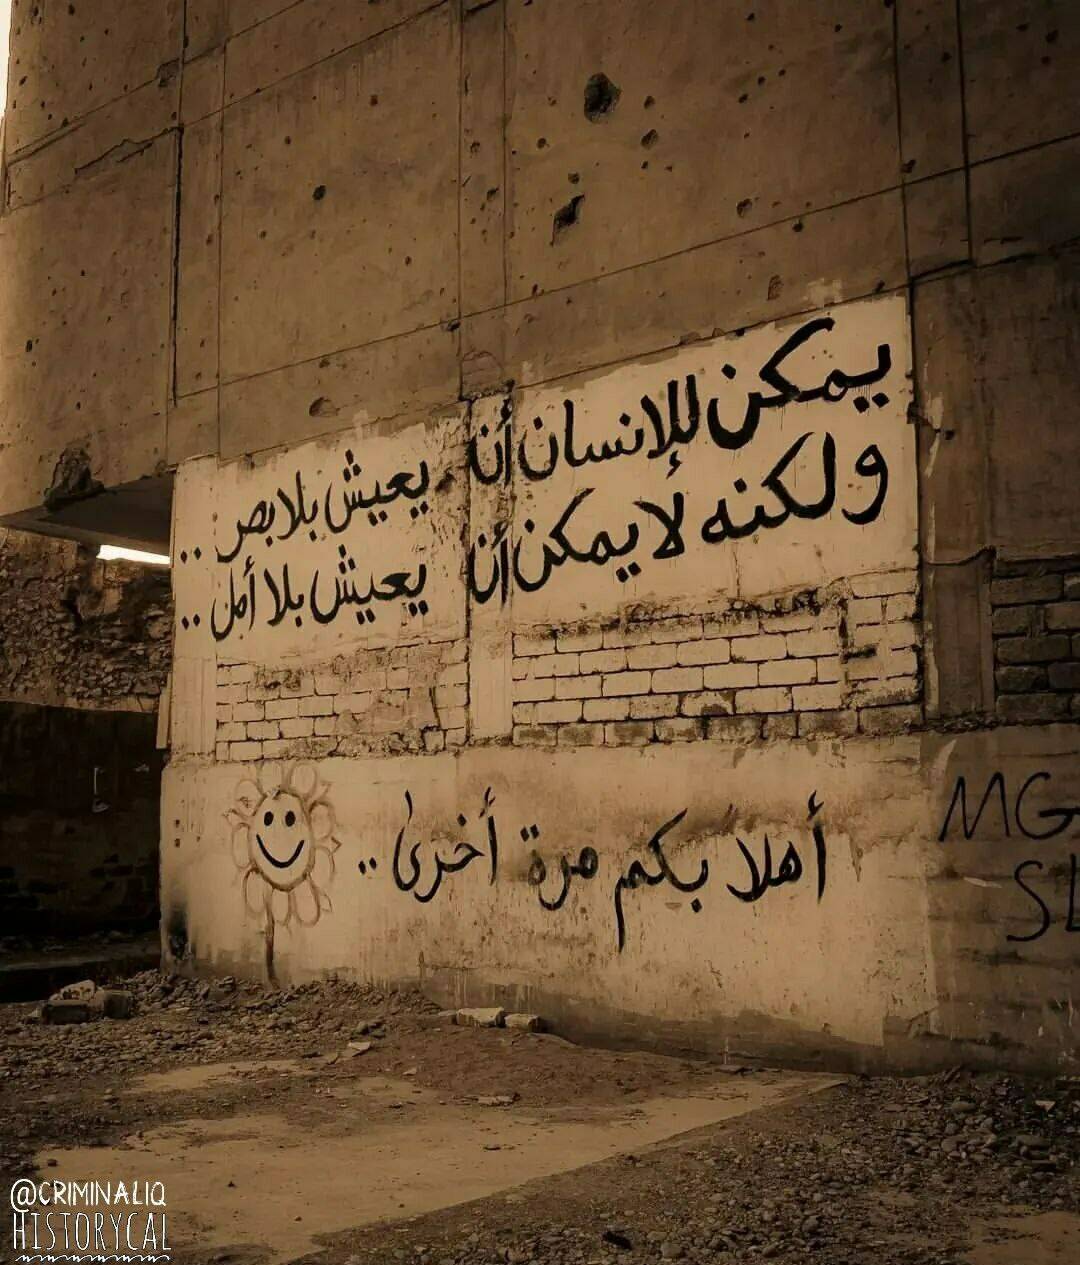 يمكن للإنسان أن يعيش بلا بصر ..
ولكنه لا يمكن أن يعيش بلا أمل ..
أهلا بكم مرة أخرى ..
MG
SL
@CRIMINALIQ
HISTORYCAL